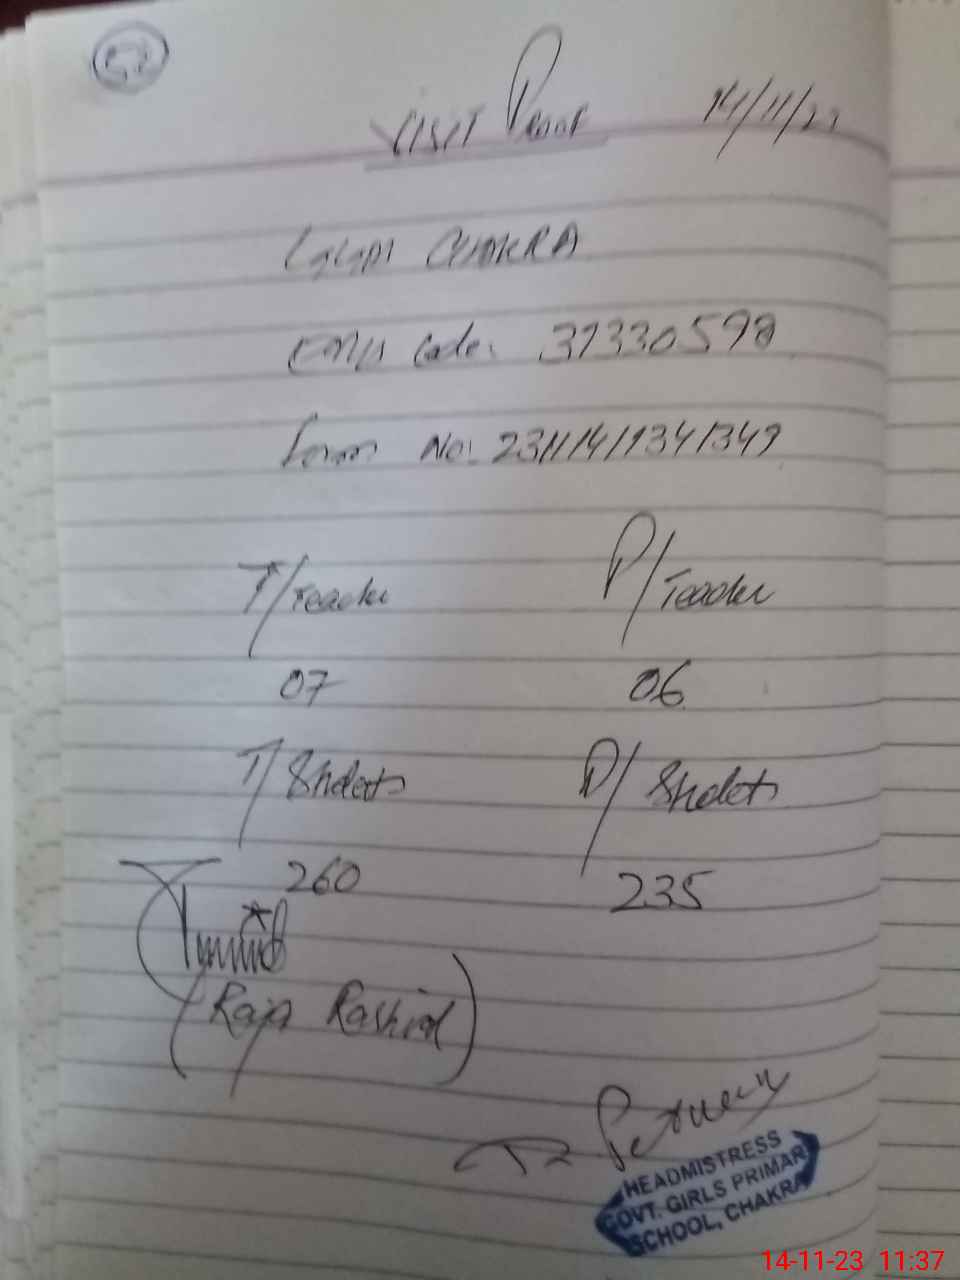 52
VISIT Proof 14/11/23
GGPS CHAKRA
EMIS Code: 37330598
Form No: 23111411341349
T/Teacher P/Teacher
07 06
T/Students P/Students
260 235
(Raja Rashid)
HEADMISTRESS
GOVT. GIRLS PRIMARY
SCHOOL, CHAKRA
14-11-23 11:37